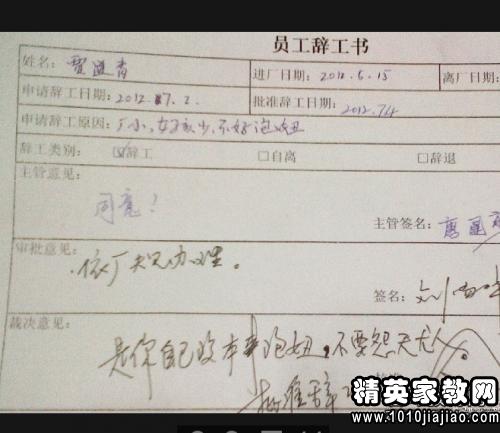 员工辞工书
姓名: 贾 青 进厂日期: 2012.6.15 离厂日期:
申请辞工日期: 2012.7.2. 批准辞工日期: 2012.7.4
申请辞工原因: 厂小,女孩少,不好泡妞
辞工类别: ☑辞工 □自离 □辞退
主管意见:
同意!
主管签名: 唐
审批意见:
依厂规办理。
签名: 刘
裁决意见:
是你自己没本事泡妞,不要怨天尤人。
批准辞工
精英家教网
www.1010jiajiao.com